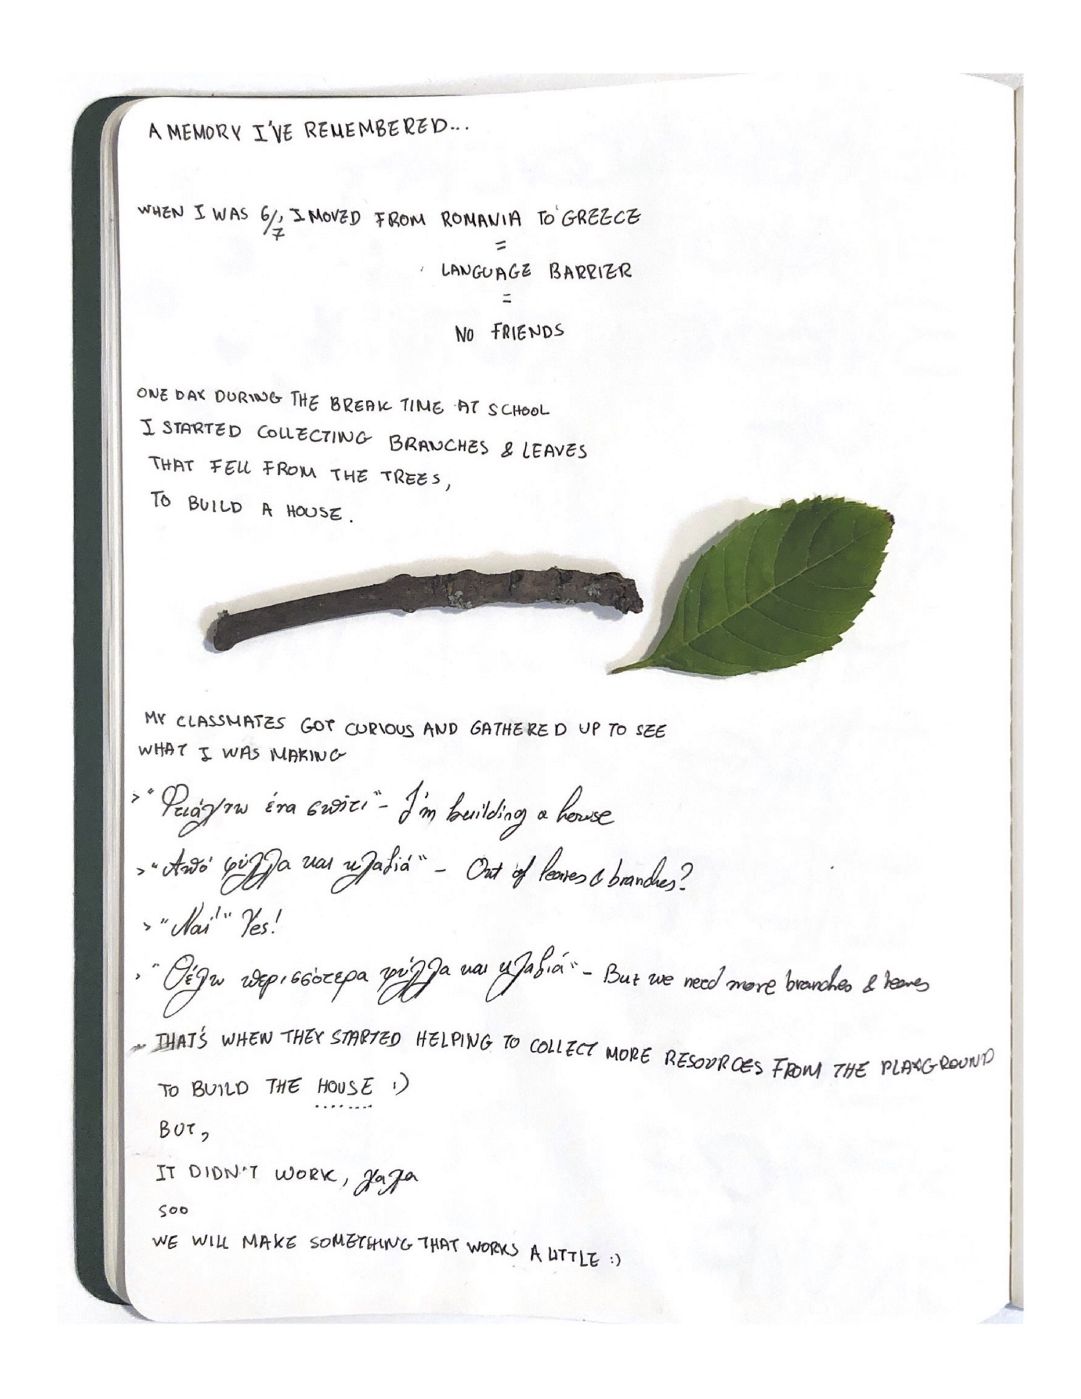 A MEMORY I'VE REMEMBERED...
WHEN I WAS 6/7, I MOVED FROM ROMANIA TO GREECE
=
LANGUAGE BARRIER
=
NO FRIENDS
ONE DAY DURING THE BREAK TIME AT SCHOOL
I STARTED COLLECTING BRANCHES & LEAVES
THAT FELL FROM THE TREES,
TO BUILD A HOUSE.
MY CLASSMATES GOT CURIOUS AND GATHERED UP TO SEE
WHAT I WAS MAKING
> "Φτιάχνω ένα σπίτι" - I'm building a house
> "Από φύλλα και κλαδιά" - Out of leaves & branches?
> "Ναί!" Yes!
> "Θέλω περισσότερα φύλλα και κλαδιά" - But we need more branches & leaves
- THAT'S WHEN THEY STARTED HELPING TO COLLECT MORE RESOURCES FROM THE PLAYGROUND
TO BUILD THE HOUSE :)
BUT,
IT DIDN'T WORK, χαχα
SOO
WE WILL MAKE SOMETHING THAT WORKS A LITTLE :)